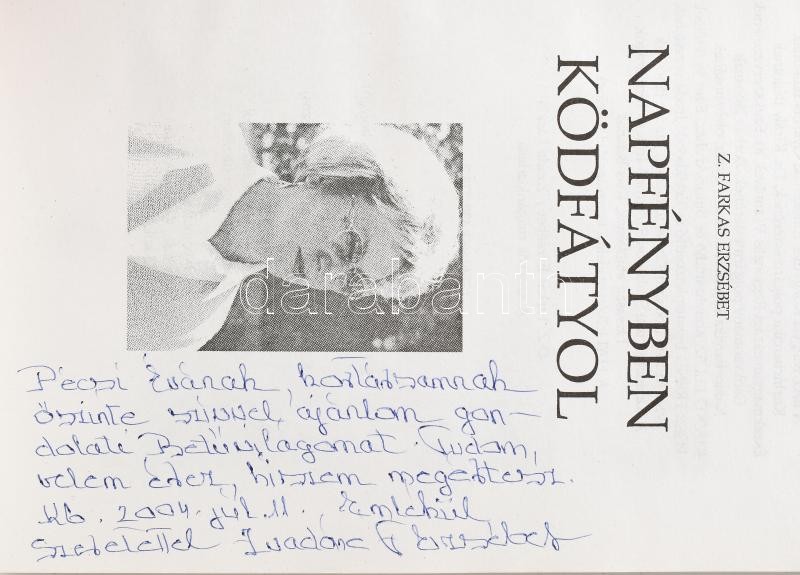 Z. FARKAS ERZSÉBET
NAPFÉNYBEN
KÖDFÁTYOL
darabanth
Pécsi Évának, kortársamnak
őszinte szívvel ajánlom gon-
dolati Betűvilágomat. Tudom,
velem érez, hiszem megértesz.
Kb. 2004. júl. 11., Emlékül
szeretettel F Erzsébet